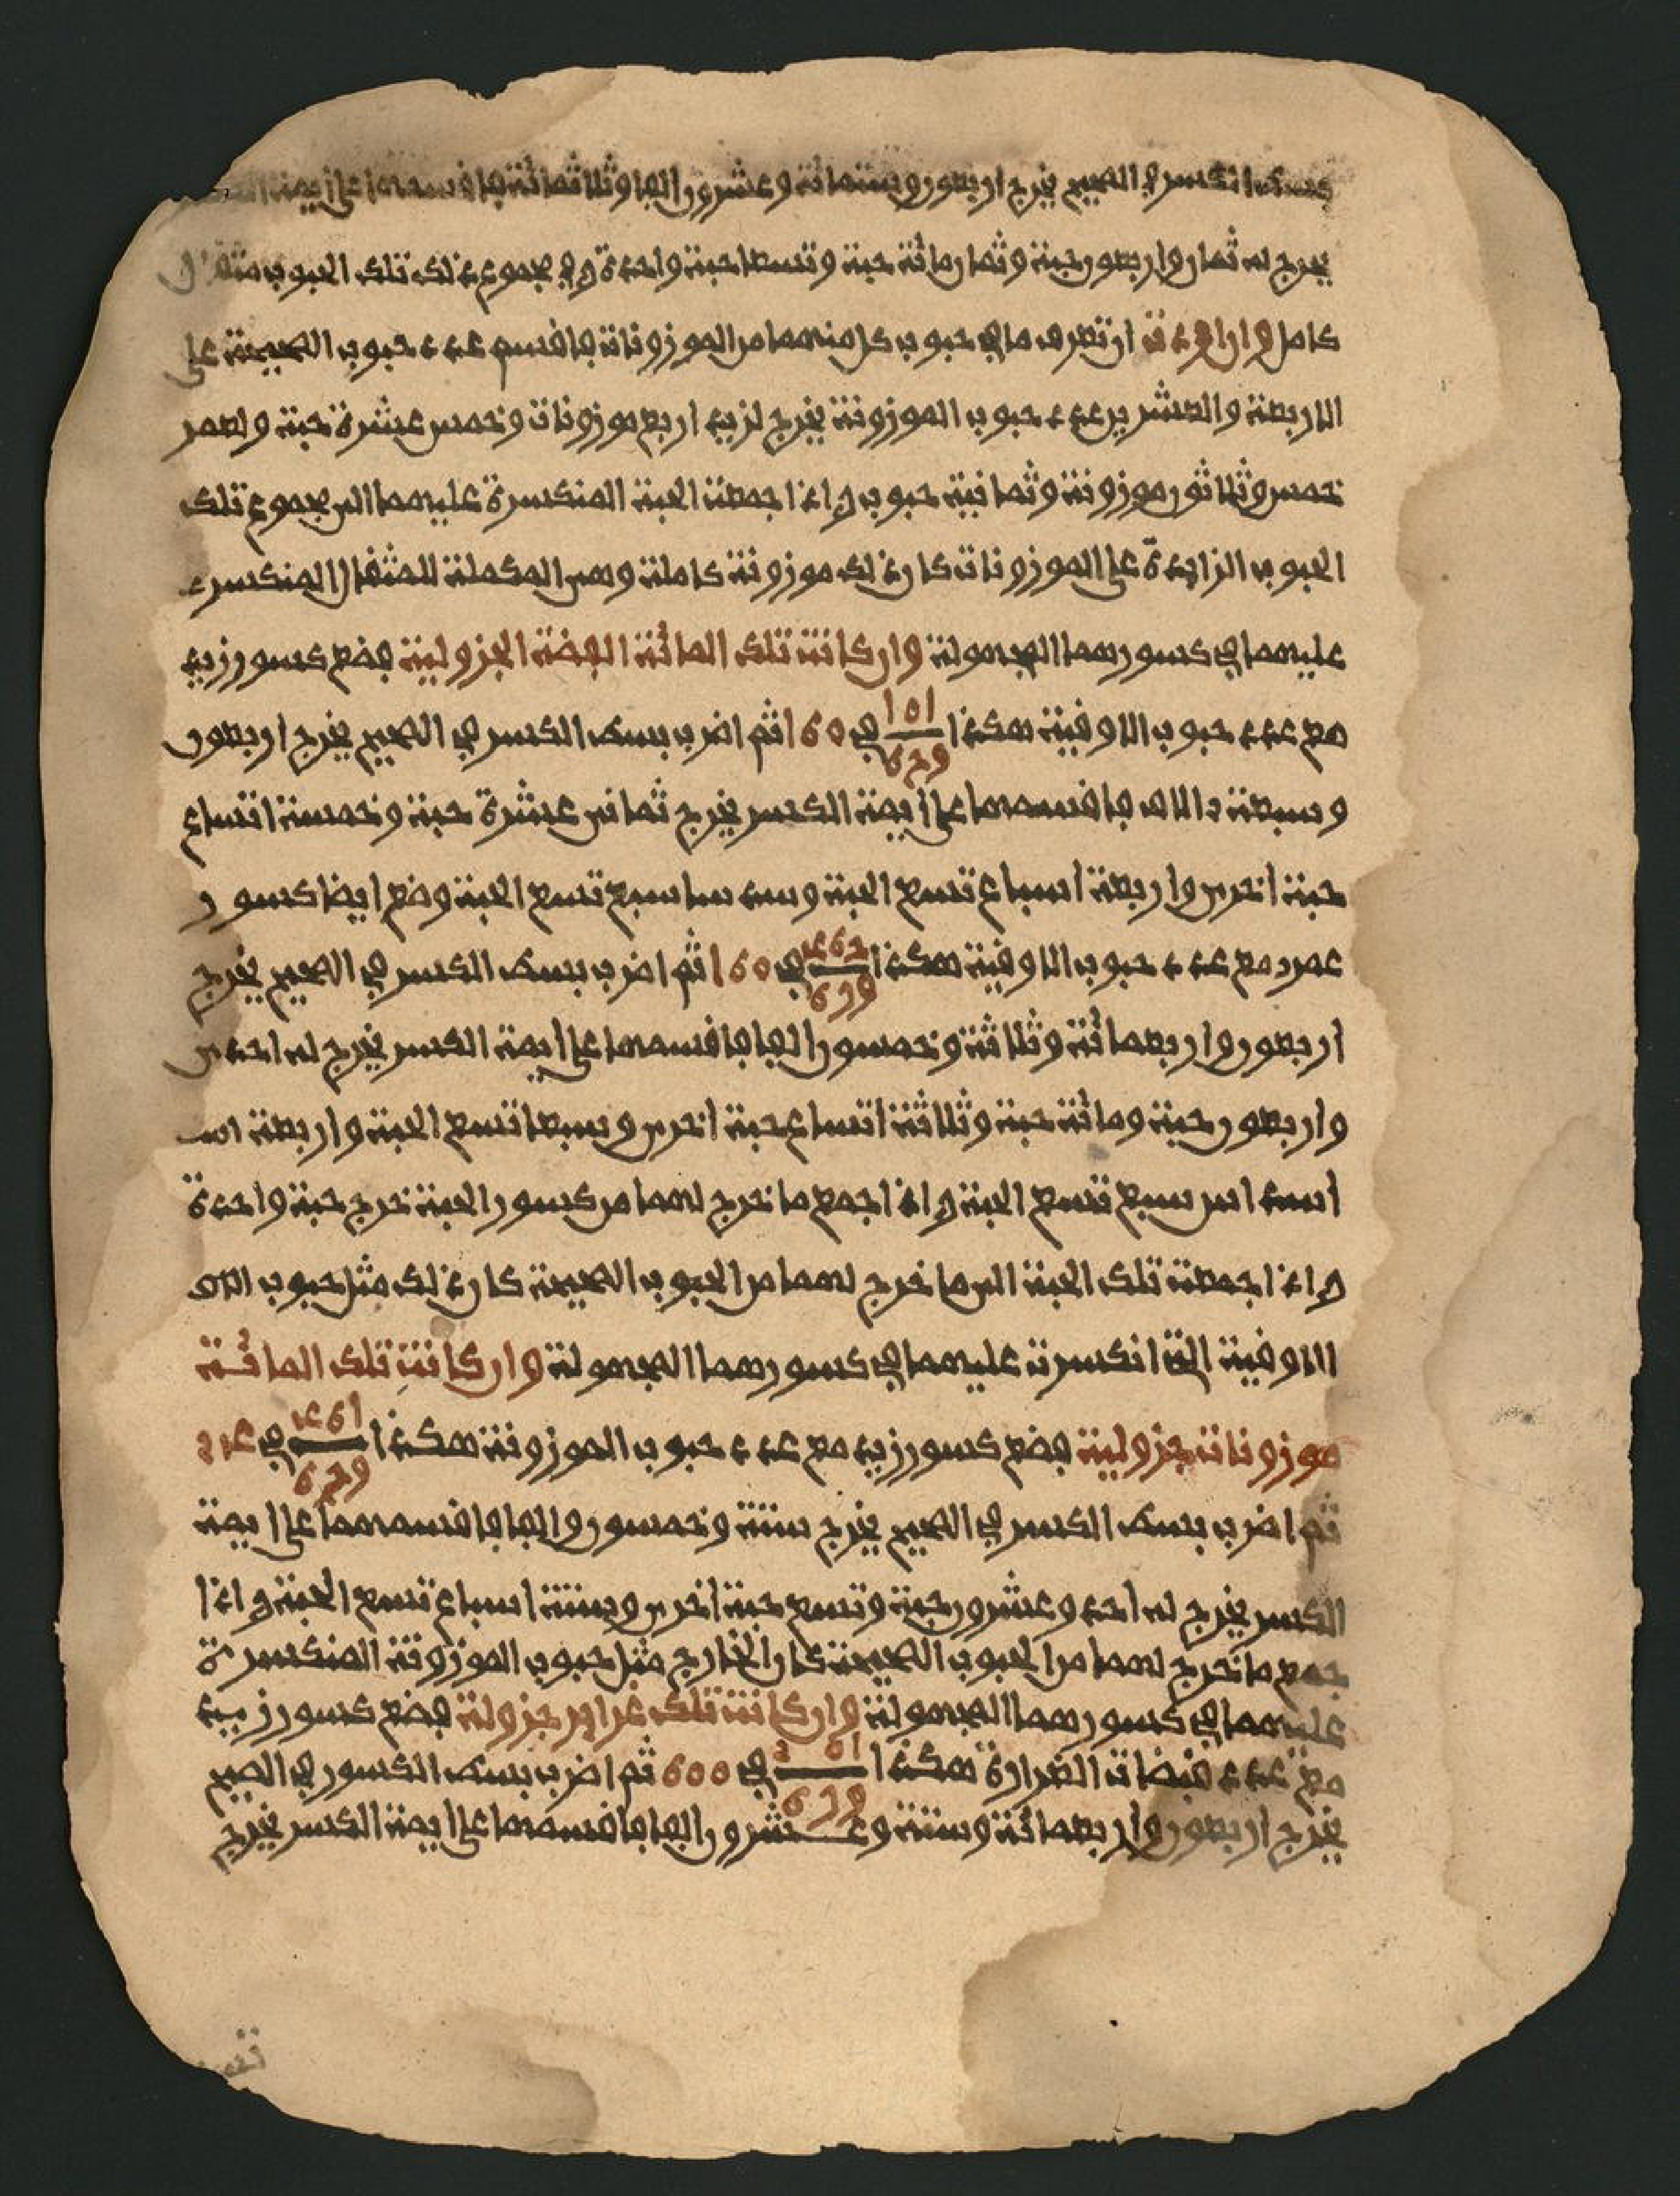 بسط الكسر في الصحيح يخرج اربعون وستمائة وعشرون الفا وثلاثمائة فاقسمها على ايمة
يخرج له ثمان واربعون حبة وثمان مائة حبة وتسعا حبة واحدة وفي مجموع ذلك تلك الحبوب مثقال
كامل وان اردت ان تعرف ما في حبوب كل منهما من الموزونات فاقسم عدد حبوب الصحيحة على
الاربعة والعشرين عدد حبوب الموزونة يخرج لزيد اربع موزونات وخمس عشرة حبة ولعمر
خمس وثلاثون موزونة وثمانية حبوب واذا جمعت الحبة المنكسرة عليهما الى مجموع تلك
الحبوب الزايدة على الموزونات كان ذلك موزونة كاملة وهي المكملة للمثقال المنكسر
عليهما في كسورهما المجهولة وان كانت تلك المائة الفضة الجزولية فضع كسور زيد
مع عدد حبوب الاوقية هكذا 151 / 976 في 160 ثم اضرب بسط الكسر في الصحيح يخرج اربعون
وسبعة ءالاف فاقسمها على ايمة الكسر يخرج ثماني عشرة حبة وخمسة اتساع
حبة اخرى واربعة اسباع تسع الحبة وسدسا سبع تسع الحبة وضع ايضا كسور
عمرو مع عدد حبوب الاوقية هكذا في 160 ثم اضرب بسط الكسر في الصحيح يخرج
اربعون واربعمائة وثلاثة وخمسون الفا فاقسمها على ايمة الكسر يخرج له احدى
واربعون حبة ومائة حبة وثلاثة اتساع حبة اخرى وسبعا تسع الحبة واربعة
اسداس سبع تسع الحبة واذا اجمع ما خرج لهما من كسور الحبة خرج حبة واحدة
واذا جمعت تلك الحبة الى ما خرج لهما من الحبوب الصحيحة كان ذلك مثل حبوب
الاوقية التي انكسرت عليهما في كسورهما المجهولة وان كانت تلك المائة
موزونات جزولية فضع كسور زيد مع عدد حبوب الموزونة هكذا في 24
ثم اضرب بسط الكسر في الصحيح يخرج ستة وخمسون والفا فاقسمها على ايمة
الكسر يخرج له احد وعشرون حبة وتسع حبة اخرى وستة اسباع تسع الحبة واذا
جمع ما خرج لهما من الحبوب الصحيحة كان الخارج مثل حبوب الموزونة المنكسرة
عليهما في كسورهما المجهولة وان كانت تلك غراير جزولة فضع كسور زيد
مع عدد قبضات الغرارة هكذا في 600 ثم اضرب بسط الكسور في الصحيح
يخرج اربعون واربعمائة وستة وعشرون الفا فاقسمها على ايمة الكسر يخرج